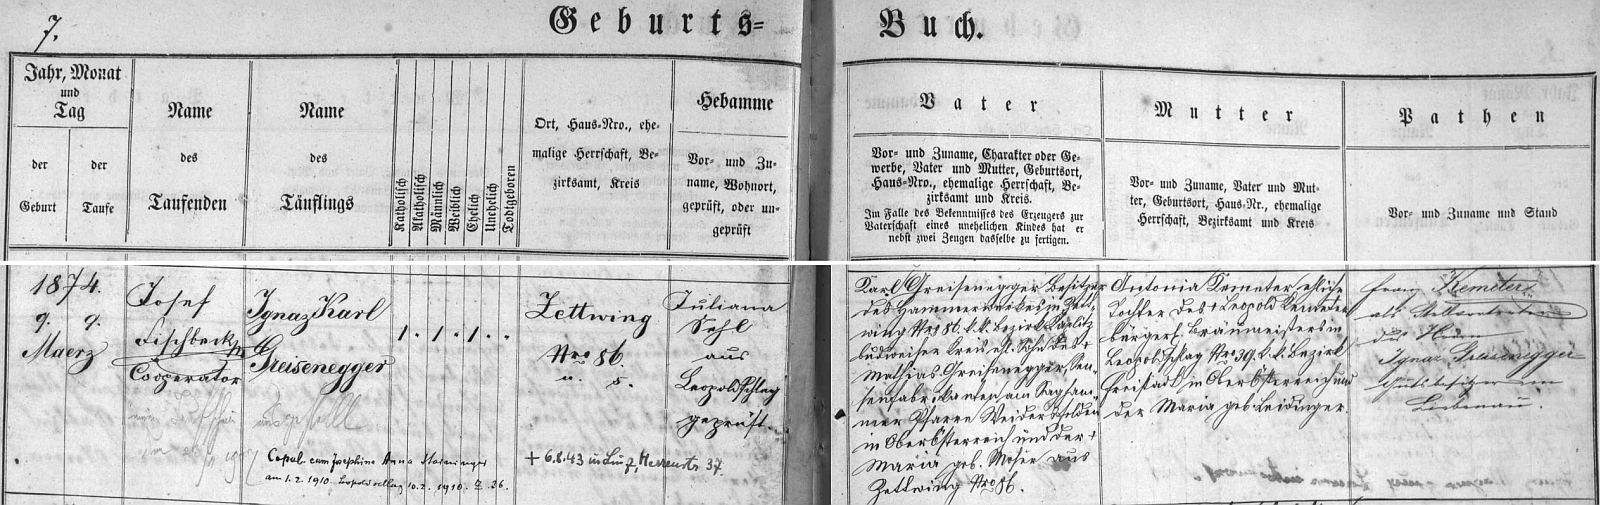 7.
Geburts=
Buch.
Jahr, Monat
und
Tag
der
Geburt
der
Taufe
Name
des
Taufenden
Name
des
Täuflings
Katholisch
Akatholisch
Männlich
Weiblich
Ehelich
Unehelich
Todtgeboren
Ort, Haus-Nro., ehe-
malige Herrschaft, Be-
zirksamt, Kreis
Hebamme
Vor- und Zu-
name, Wohnort,
geprüft, oder un-
geprüft
Vater
Vor- und Zuname, Charakter oder Ge-
werbe, Vater und Mutter, Geburtsort,
Haus-Nro., ehemalige Herrschaft, Be-
zirksamt und Kreis.
Im Falle des Bekenntnisses des Erzeugers zur
Vaterschaft eines unehelichen Kindes hat er
nebst zwei Zeugen dasselbe zu fertigen.
Mutter
Vor- und Zuname, Vater und Mut-
ter, Geburtsort, Haus-Nr., ehemalige
Herrschaft, Bezirksamt und Kreis
Pathen
Vor- und Zuname und Stand
1874.
9. 9.
Maerz
Josef
Fischbeck
Cooperator
Ignaz Karl
Greisenegger
1. 1. 1.
Zettwing
Nro 86.
Juliana
Sehl
aus
Leopoldschlag
geprüft.
Copul. cum Josephine Anna
am 1.2.1910. Leopoldschlag 10.2.1910. Z. 36.
+ 6.8.43 in Linz, Herrenstr. 37.
Karl Greisenegger Besitzer
des Hammerwerkes in Zett-
wing Nro 86. k.k. Bezirk Kaplitz
budweiser Kreis ehl. Sohn des +
Mathias Greisenegger, Sen-
senfabrikanten am
ner Pfarre Weidersfelden
in Oberösterreich und der +
Maria geb. Moser aus
Zettwing Nro 86.
Antonia Kemeter eheliche
Tochter des + Leopold Kemeter
bürgerl. Braumeisters in
Leopoldschlag Nro 39. k.k. Bezirk
Freistadt in Oberösterreich und
der Maria geb. Leidinger.
Franz Kemeter
als Stellvertreter
des Herrn
Ignaz Greisenegger
Gutsbesitzer in
Liebenau.